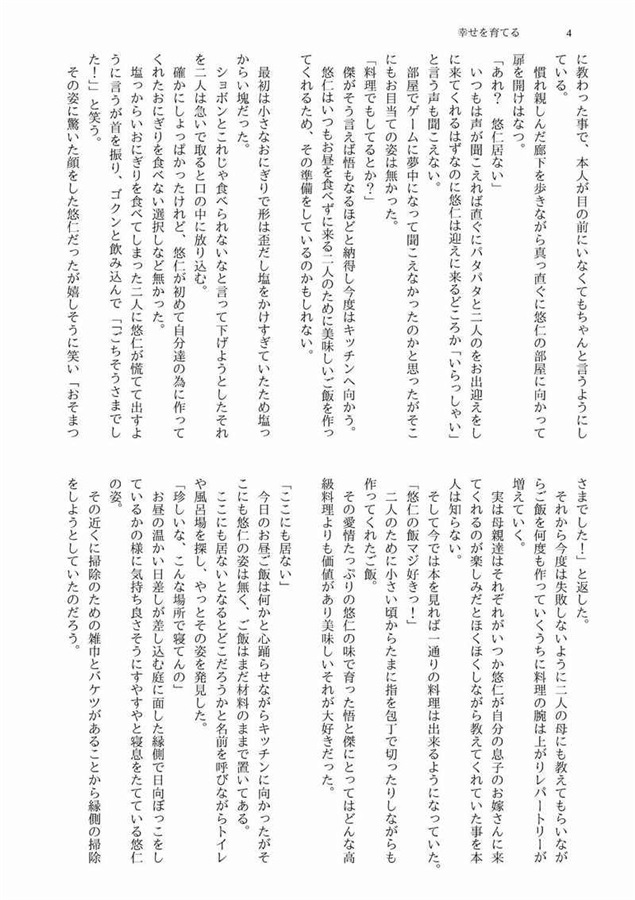 幸せを育てる
4
に教わった事で、本人が目の前にいなくてもちゃんと言うようにし
ている。
慣れ親しんだ廊下を歩きながら真っ直ぐに悠仁の部屋に向かって
扉を開けはなつ。
「あれ？　悠仁居ない」
いつもは声が聞こえれば直ぐにパタパタと二人のをお出迎えをし
に来てくれるはずなのに悠仁は迎えに来るどころか「いらっしゃい」
と言う声も聞こえない。
部屋でゲームに夢中になって聞こえなかったのかと思ったがそこ
にもお目当ての姿は無かった。
「料理でもしてるとか？」
傑がそう言えば悟もなるほどと納得し今度はキッチンへ向かう。
悠仁はいつもお昼を食べずに来る二人のために美味しいご飯を作っ
てくれるため、その準備をしているのかもしれない。
最初は小さなおにぎりで形は歪だし塩をかけすぎていたため塩っ
からい塊だった。
ショボンとこれじゃ食べられないなと言って下げようとしたそれ
を二人は急いで取ると口の中に放り込む。
確かにしょっぱかったけれど、悠仁が初めて自分達の為に作って
くれたおにぎりを食べない選択しなど無かった。
塩っからいおにぎりを食べてしまった二人に悠仁が慌てて出すよ
うに言うが首を振り、ゴクンと飲み込んで「「ごちそうさまでし
た！」」と笑う。
その姿に驚いた顔をした悠仁だったが嬉しそうに笑い「おそまつ
さまでした！」と返した。
それから今度は失敗しないように二人の母にも教えてもらいなが
らご飯を何度も作っていくうちに料理の腕は上がりレパートリーが
増えていく。
実は母親達はそれぞれがいつか悠仁が自分の息子のお嫁さんに来
てくれるのが楽しみだとほくほくしながら教えてくれていた事を本
人は知らない。
そして今では本を見れば一通りの料理は出来るようになっていた。
「悠仁の飯マジ好きっ！」
二人のために小さい頃からたまに指を包丁で切ったりしながらも
作ってくれたご飯。
その愛情たっぷりの悠仁の味で育った悟と傑にとってはどんな高
級料理よりも価値があり美味しいそれが大好きだった。
「ここにも居ない」
今日のお昼ご飯は何かと心踊らせながらキッチンに向かったがそ
こにも悠仁の姿は無く、ご飯はまだ材料のままで置いてある。
ここにも居ないとなるとどこだろうかと名前を呼びながらトイレ
や風呂場を探し、やっとその姿を発見した。
「珍しいな、こんな場所で寝てんの」
お昼の温かい日差しが差し込む庭に面した縁側で日向ぼっこをし
ているかの様に気持ち良さそうにすやすやと寝息をたてている悠仁
の姿。
その近くに掃除のための雑巾とバケツがあることから縁側の掃除
をしようとしていたのだろう。